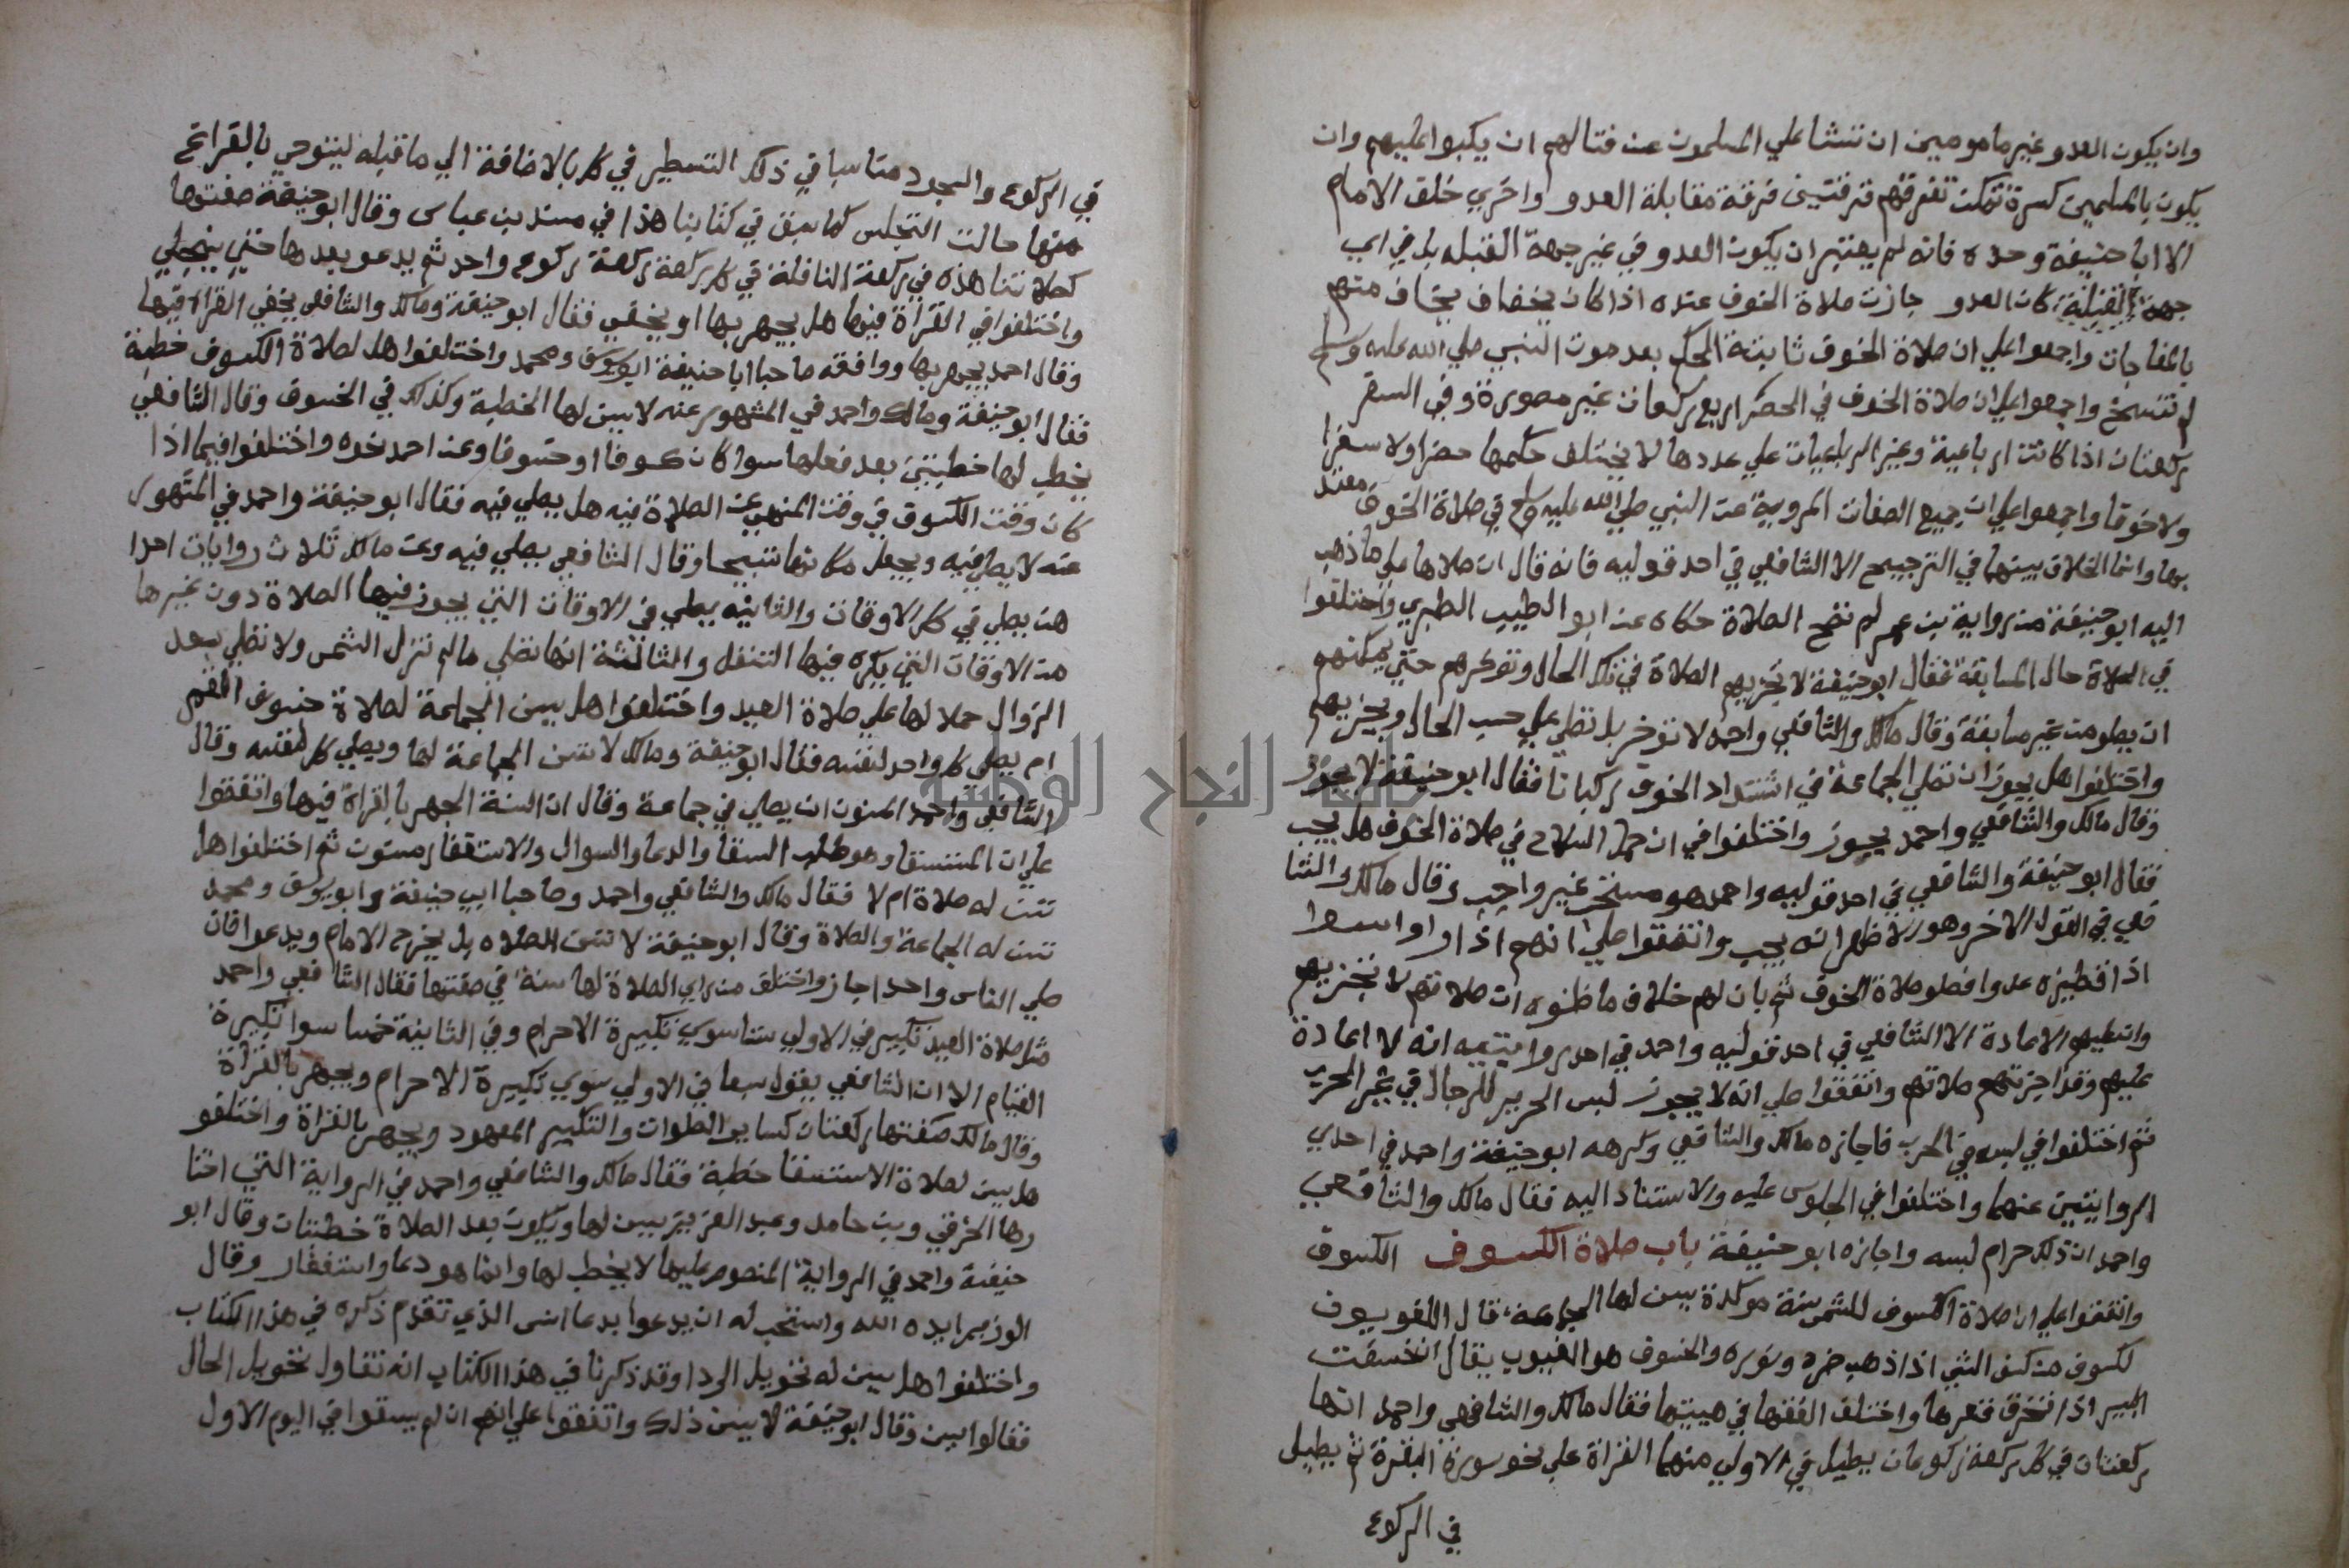 وان يكون العدو غير مامومين ان تنشا علي المسلمون عند قتالهم ان يكبوا عليهم وان
يكون بالمسلمين كسرة تمكن تفرقهم فرقتين فرقة مقابلة العدو واخري خلف الامام
الا ابا حنيفة وحده فانه لم يعتبر ان يكون العدو في غير جهة القبله بل في اي
جهة القبلة كان العدو جازت صلاة الخوف عنده اذا كان يخفاف يخاف منهم
بالمفاجات واجمعوا علي ان صلاة الخوف ثابتة الحكم بعد موت النبي صلي الله عليه وسلم
لم تنسخ واجمعوا علي ان صلاة الخوف في الحضر اربع ركعات غير مصورة وفي السفر
ركعتان اذا كانت ارباعية وغير الرباعيات علي عددها لا يختلف حكمها حضرا ولا سفرا
ولا خوفا واجمعوا علي ان جميع الصفات المروية عن النبي صلي الله عليه وسلم في صلاة الخوف معتد
بها وانما الخلاف بينهما في الترجيح الا الشافعي في احد قوليه فانه قال ان صلاها علي ما ذهب
اليه ابو حنيفة من رواية بن عمر لم تصح الصلاة حكاه عنه ابو الطيب الطبري واختلفوا
في الصلاة حال المسايفة فقال ابو حنيفة لا تجزيهم الصلاة في تلك الحال وتوخرهم حتي يمكنهم
ان يصلو من غير مسايفة وقال مالك والشافعي واحمد لا توخر بل تصلي علي حسب الحال ويجزيهم
واختلفوا هل يجوز ان تصلي الجماعة في اشتداد الخوف ركبانا فقال ابو حنيفة لا يجوز
وقال مالك والشافعي واحمد يجوز واختلفوا في ان حمل السلاح في صلاة الخوف هل يجب
فقال ابو حنيفة والشافعي في احد قوليه واحمد هو مستحب غير واجب وقال مالك والشا
فعي في القول الاخر وهو الاظهر انه يجب واتفقوا علي انهم اذا راوا سوادا
اذا فظنوه عدوا فصلو صلاة الخوف ثم بان لهم خلاف ما ظنوه ان صلاتهم لا تجزيهم
وان عليهم الاعادة الا الشافعي في احد قوليه واحمد في احدي روايتيه انه لا اعادة
عليهم وقد اجزتهم صلاتهم واتفقوا علي انه لا يجوز لبس الحرير للرجال في غير الحرب
ثم اختلفوا في لبسه في الحرب فاجازه مالك والشافعي وكرهه ابو حنيفة واحمد في احدي
الروايتين عنهما واختلفوا في الجلوس عليه والاستناد اليه فقال مالك والشافعي
واحمد ان ذلك حرام لبسه واجازه ابو حنيفة باب صلاة الكسوف الكسوف
واتفقوا علي ان صلاة الكسوف للشمس سنة موكدة يسن لها الجماعة قال اللغويون
لكسوف من كسف الشي اذا ذهب ضوه ونوره والخسوف هو الغيوب يقال انخسفت
البير اذا انخرق قعرها واختلف الفقها في هييتها فقال مالك والشافعي واحمد انها
ركعتان في كل ركعة ركوعان يطيل في الاولي منهما القراة علي نحو سورة البقرة ثم يطيل
في الركوع
في الركوع والسجود متاسبا في ذلك التسطير في كل بالاضافة الي ما قبله ليتوحي بالقراتح
منها حالت التجلس كما سبق في كتابنا هذا في مسند بن عباس وقال ابو حنيفة صفتها
كصلاتنا هذه في ركعة النافلة في كل ركعة ركعة ركوع واحد ثم يدعو بعدها حتي ينجلي
واختلفوا في القراة فيها هل يجهر بها او يخفي فقال ابو حنيفة ومالك والشافعي يخفي القراة فيها
وقال احمد يجهر بها ووافقه صاحبا ابا حنيفة ابو يوسف ومحمد واختلفوا هل لصلاة الكسوف خطبة
فقال ابو حنيفة ومالك واحمد في المشهور عنه لا يسن لها الخطبة وكذلك في الخسوف وقال الشافعي
يخطب لها خطبتين بعد فعلها سوا كان كسوفا او خسوفا وعن احمد نحوه واختلفوا فيما اذا
كان وقت الكسوف في وقت المنهي عن الصلاة فيه هل يصلي فيه فقال ابو حنيفة واحمد في المشهور
عنه لا يصلي فيه ويجعل مكانها تسبيحا وقال الشافعي يصلي فيه وعن مالك ثلاث روايات احدا
هن يصلي في كل الاوقات والثانيه يصلي في الاوقات التي يجوز فيها الصلاة دون غيرها
من الاوقات التي يكره فيها التنفل والثالثة انها تصلي مالم تزل الشمس ولا تصلي بعد
الزوال حملا لها علي صلاة العيد واختلفوا هل يسن الجماعة لصلاة خسوف القمر
ام يصلي كل واحد لنفسه فقال ابو حنيفة ومالك لا تسن الجماعة لها ويصلي كل لنفسه وقال
الشافعي واحمد المسنون ان يصلي في جماعة وقال ان السنة الجهر بالقراة فيها واتفقوا
علي ان المستسقا وهو طلب السقا والدعا والسوال والاستغفار مسنون ثم اختلفوا هل
تسن له صلاة ام لا فقال مالك والشافعي واحمد وصاحبا ابي حنيفة وابو يوسف ومحمد
تسن له الجماعة والصلاة وقال ابو حنيفة لا تسن الصلاه بل يخرج الامام ويدعو افان
صلي الناس واحد اجاز واختلف من راي الصلاة لها سنة في صفتها فقال الشافعي واحمد
مثل صلاة العيد تكبير في الاولي ستا سوي تكبيرة الاحرام وفي الثانية خمسا سوا تكبيرة
القيام الا ان الشافعي يقول سبعا في الاولي سوي تكبيرة الاحرام ويجهر بالقراة
وقال مالك صفتها ركعتان كساير الصلوات والتكبير المعهود ويجهر بالقراة واختلفو
هل يسن لصلاة الاستسقا خطبة فقال مالك والشافعي واحمد في الرواية التي اختا
رها الخرقي وبن حامد وعبد العزيز يسن لها ويكون بعد الصلاة خطبتان وقال ابو
حنيفة واحمد في الرواية المنصوص عليها لا يخطب لها وانما هو دعا واستغفار وقال
الوزير ايده الله واستحب له ان يدعوا بدعا انس الذي تقدم ذكره في هذا الكتاب
واختلفوا هل يسن له تحويل الردا وقد ذكرنا في هذا الكتاب انه تفاول تحويل الحال
فقالوا يسن وقال ابو حنيفة لا يسن ذلك واتفقوا علي انهم ان لم يسقوا في اليوم الاول
جامعة النجاح الوطنية